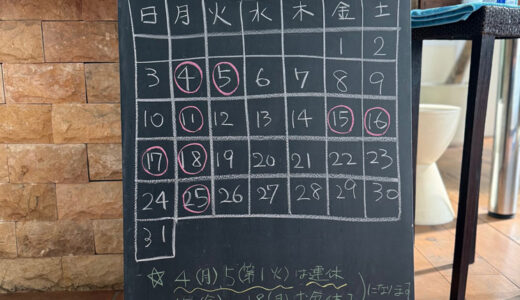 日 月 火 水 木 金 土
1 2
3 4 5 6 7 8 9
10 11 12 13 14 15 16
17 18 19 20 21 22 23
24 25 26 27 28 29 30
31
☆ 4(月)5(第1火)は連休
になります